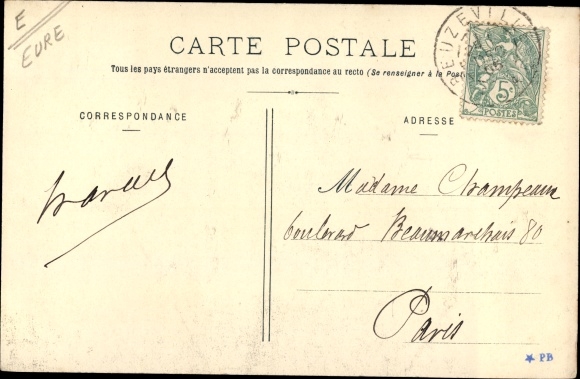 E
EURE
CARTE POSTALE
Tous les pays étrangers n'acceptent pas la correspondance au recto (Se renseigner à la Poste
CORRESPONDANCE
ADRESSE
BEUZEVILL
5c
POSTES
Madame Champeaux
boulevard Beaumarchais 80
Paris
PB